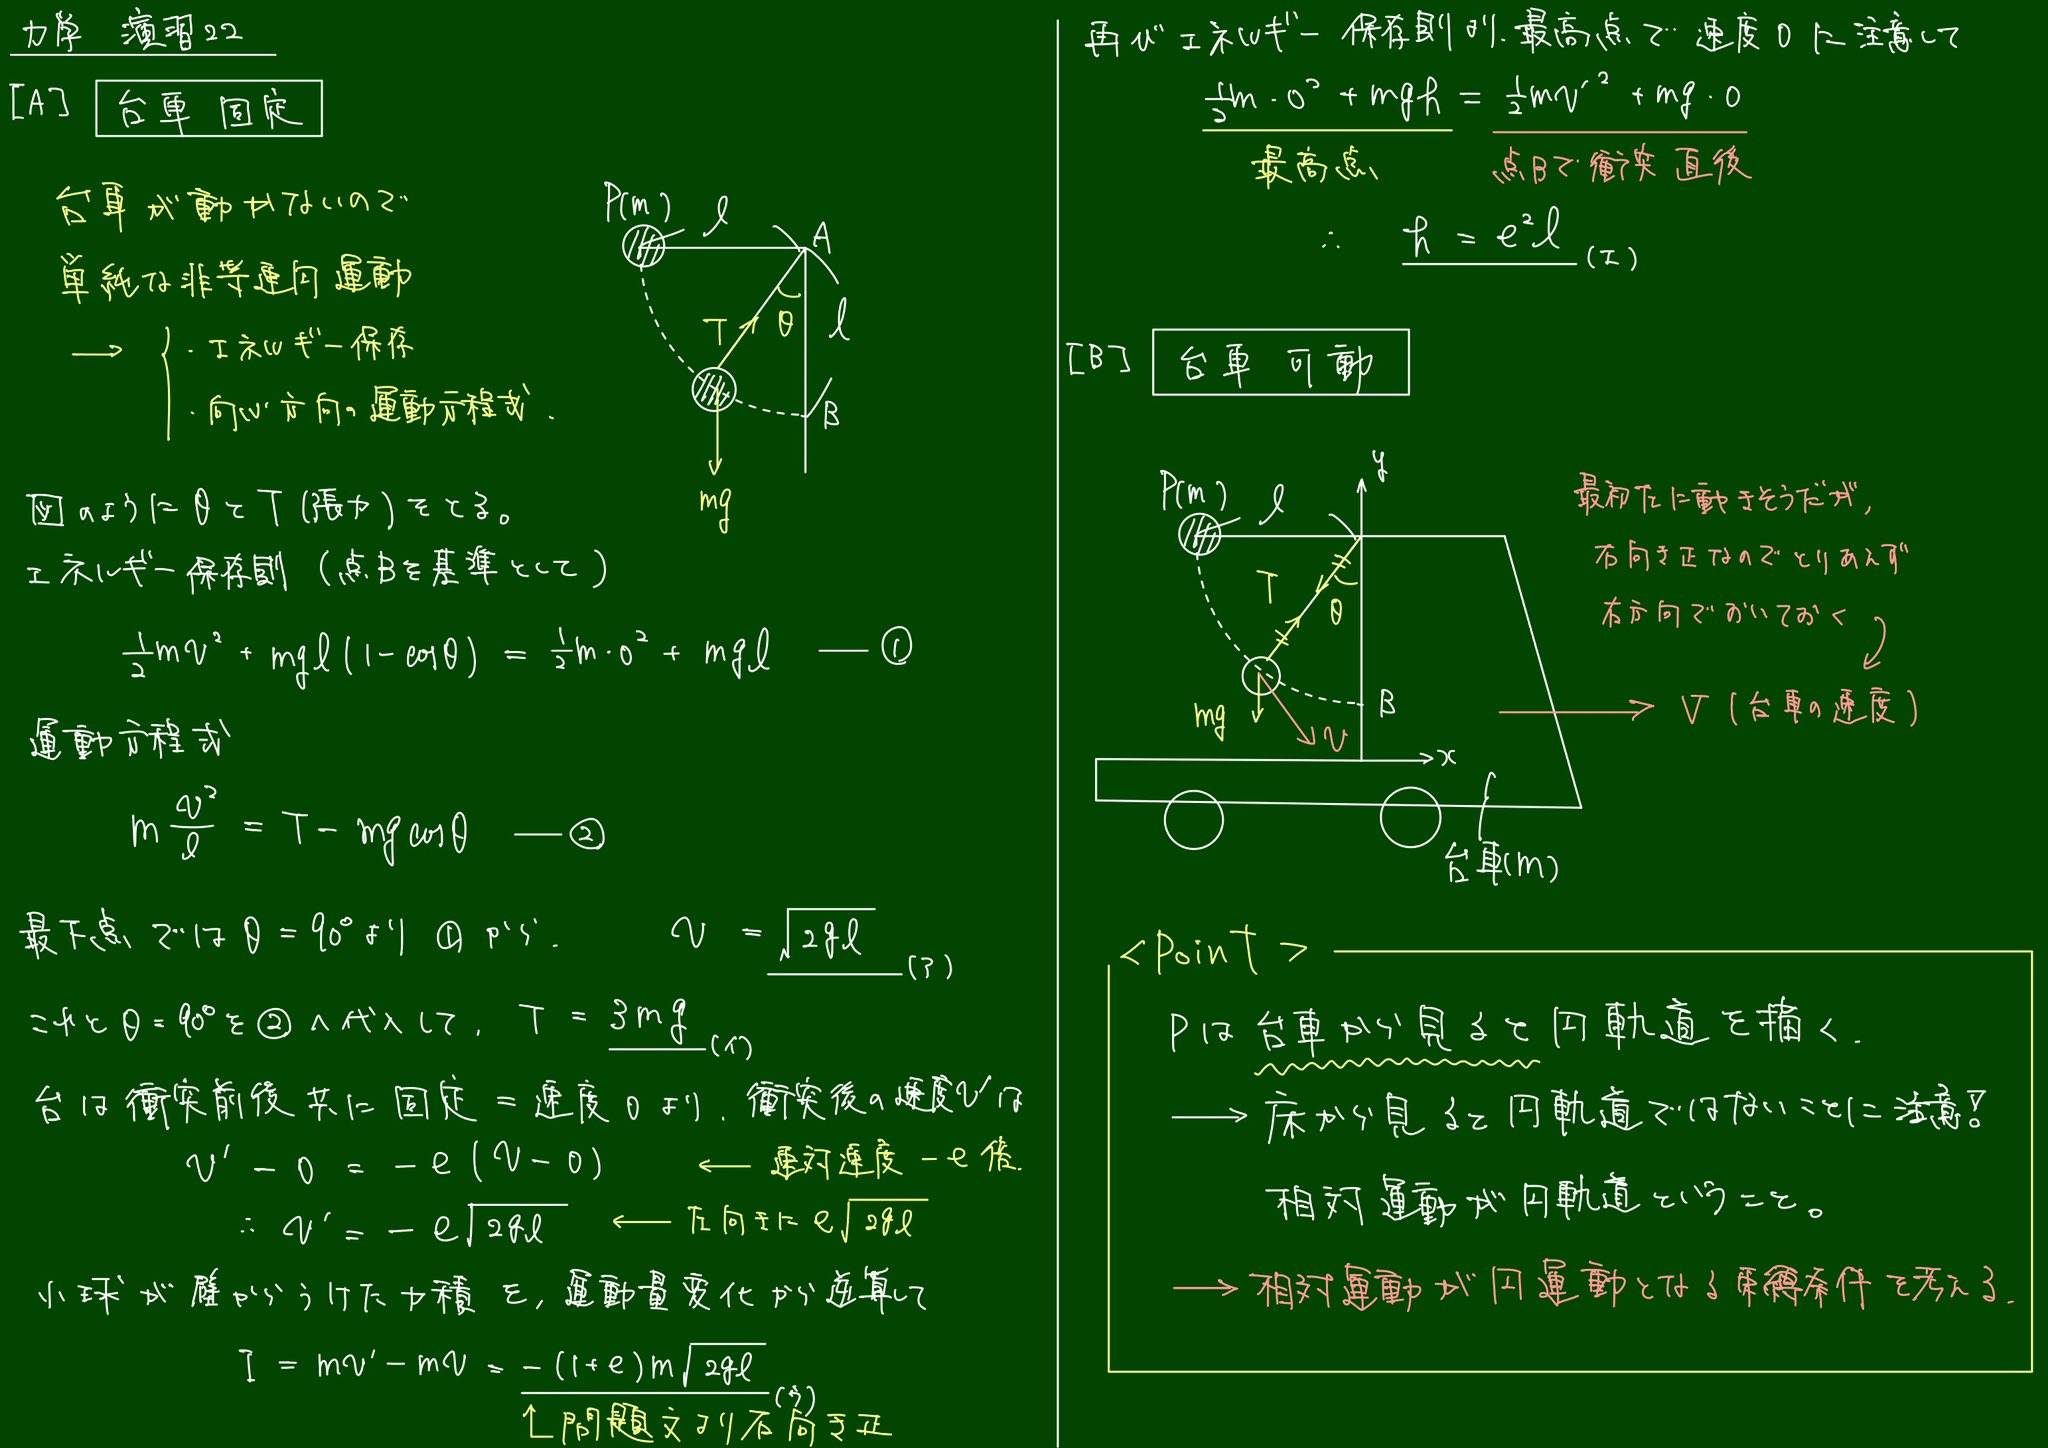 力学 演習22
[A] 台車 固定
台車が動かないので
単純な非等速円運動
→ { ・エネルギー保存
・向心方向の運動方程式.
P(m) l A
T θ l
B
mg
図のようにθとT(張力)をとる。
エネルギー保存則 (点Bを基準として)
½mv² + mgl(1-cosθ) = ½m・0² + mgl ― ①
運動方程式
m v²/l = T - mg cosθ ― ②
最下点ではθ=90°より①から. v = √2gl (ア)
これとθ=90°を②へ代入して, T = 3mg (イ)
台は衝突前後共に固定=速度0より, 衝突後の速度v'は
v' - 0 = -e(v-0) ← 相対速度-e倍.
∴ v' = -e√2gl ← 左向きにe√2gl
小球が壁からうけた力積を, 運動量変化から逆算して
I = mv' - mv = -(1+e)m√2gl (ウ)
↑問題文より右向き正
再びエネルギー保存則より. 最高点で速度0に注意して
½m・0² + mgh = ½mv'² + mg・0
最高点 点Bで衝突直後
∴ h = e²l (エ)
[B] 台車 可動
P(m) l y
T θ
mg v B
x
台車(m)
最初左に動きそうだが,
右向き正なのでとりあえず
右方向でおいておく
V (台車の速度)
<Point>
Pは台車から見ると円軌道を描く.
→ 床から見ると円軌道ではないことに注意!
相対運動が円軌道ということ。
→ 相対運動が円運動となる束縛条件を考える.